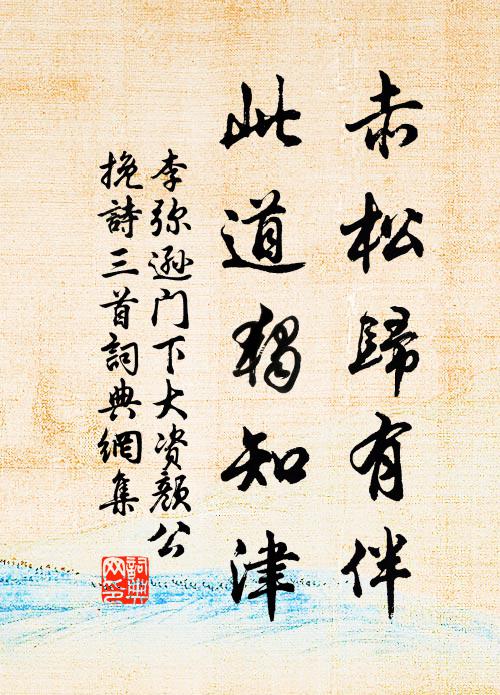 赤松歸有伴
此道獨知津
李弥遜门下大资颜公
挽詩三首詞典網集
詞典
网